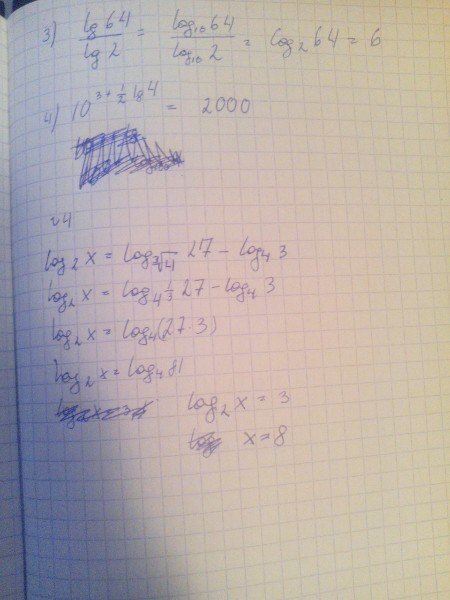 3) lg 64 / lg 2 = log₁₀ 64 / log₁₀ 2 = log₂ 64 = 6
4) 10^(3 + 1/2 lg 4) = 2000
√4
log₂ x = log_∛4 27 - log₄ 3
log₂ x = log_4^(1/3) 27 - log₄ 3
log₂ x = log₄(27·3)
log₂ x = log₄ 81
log₂ x = 3
x = 8